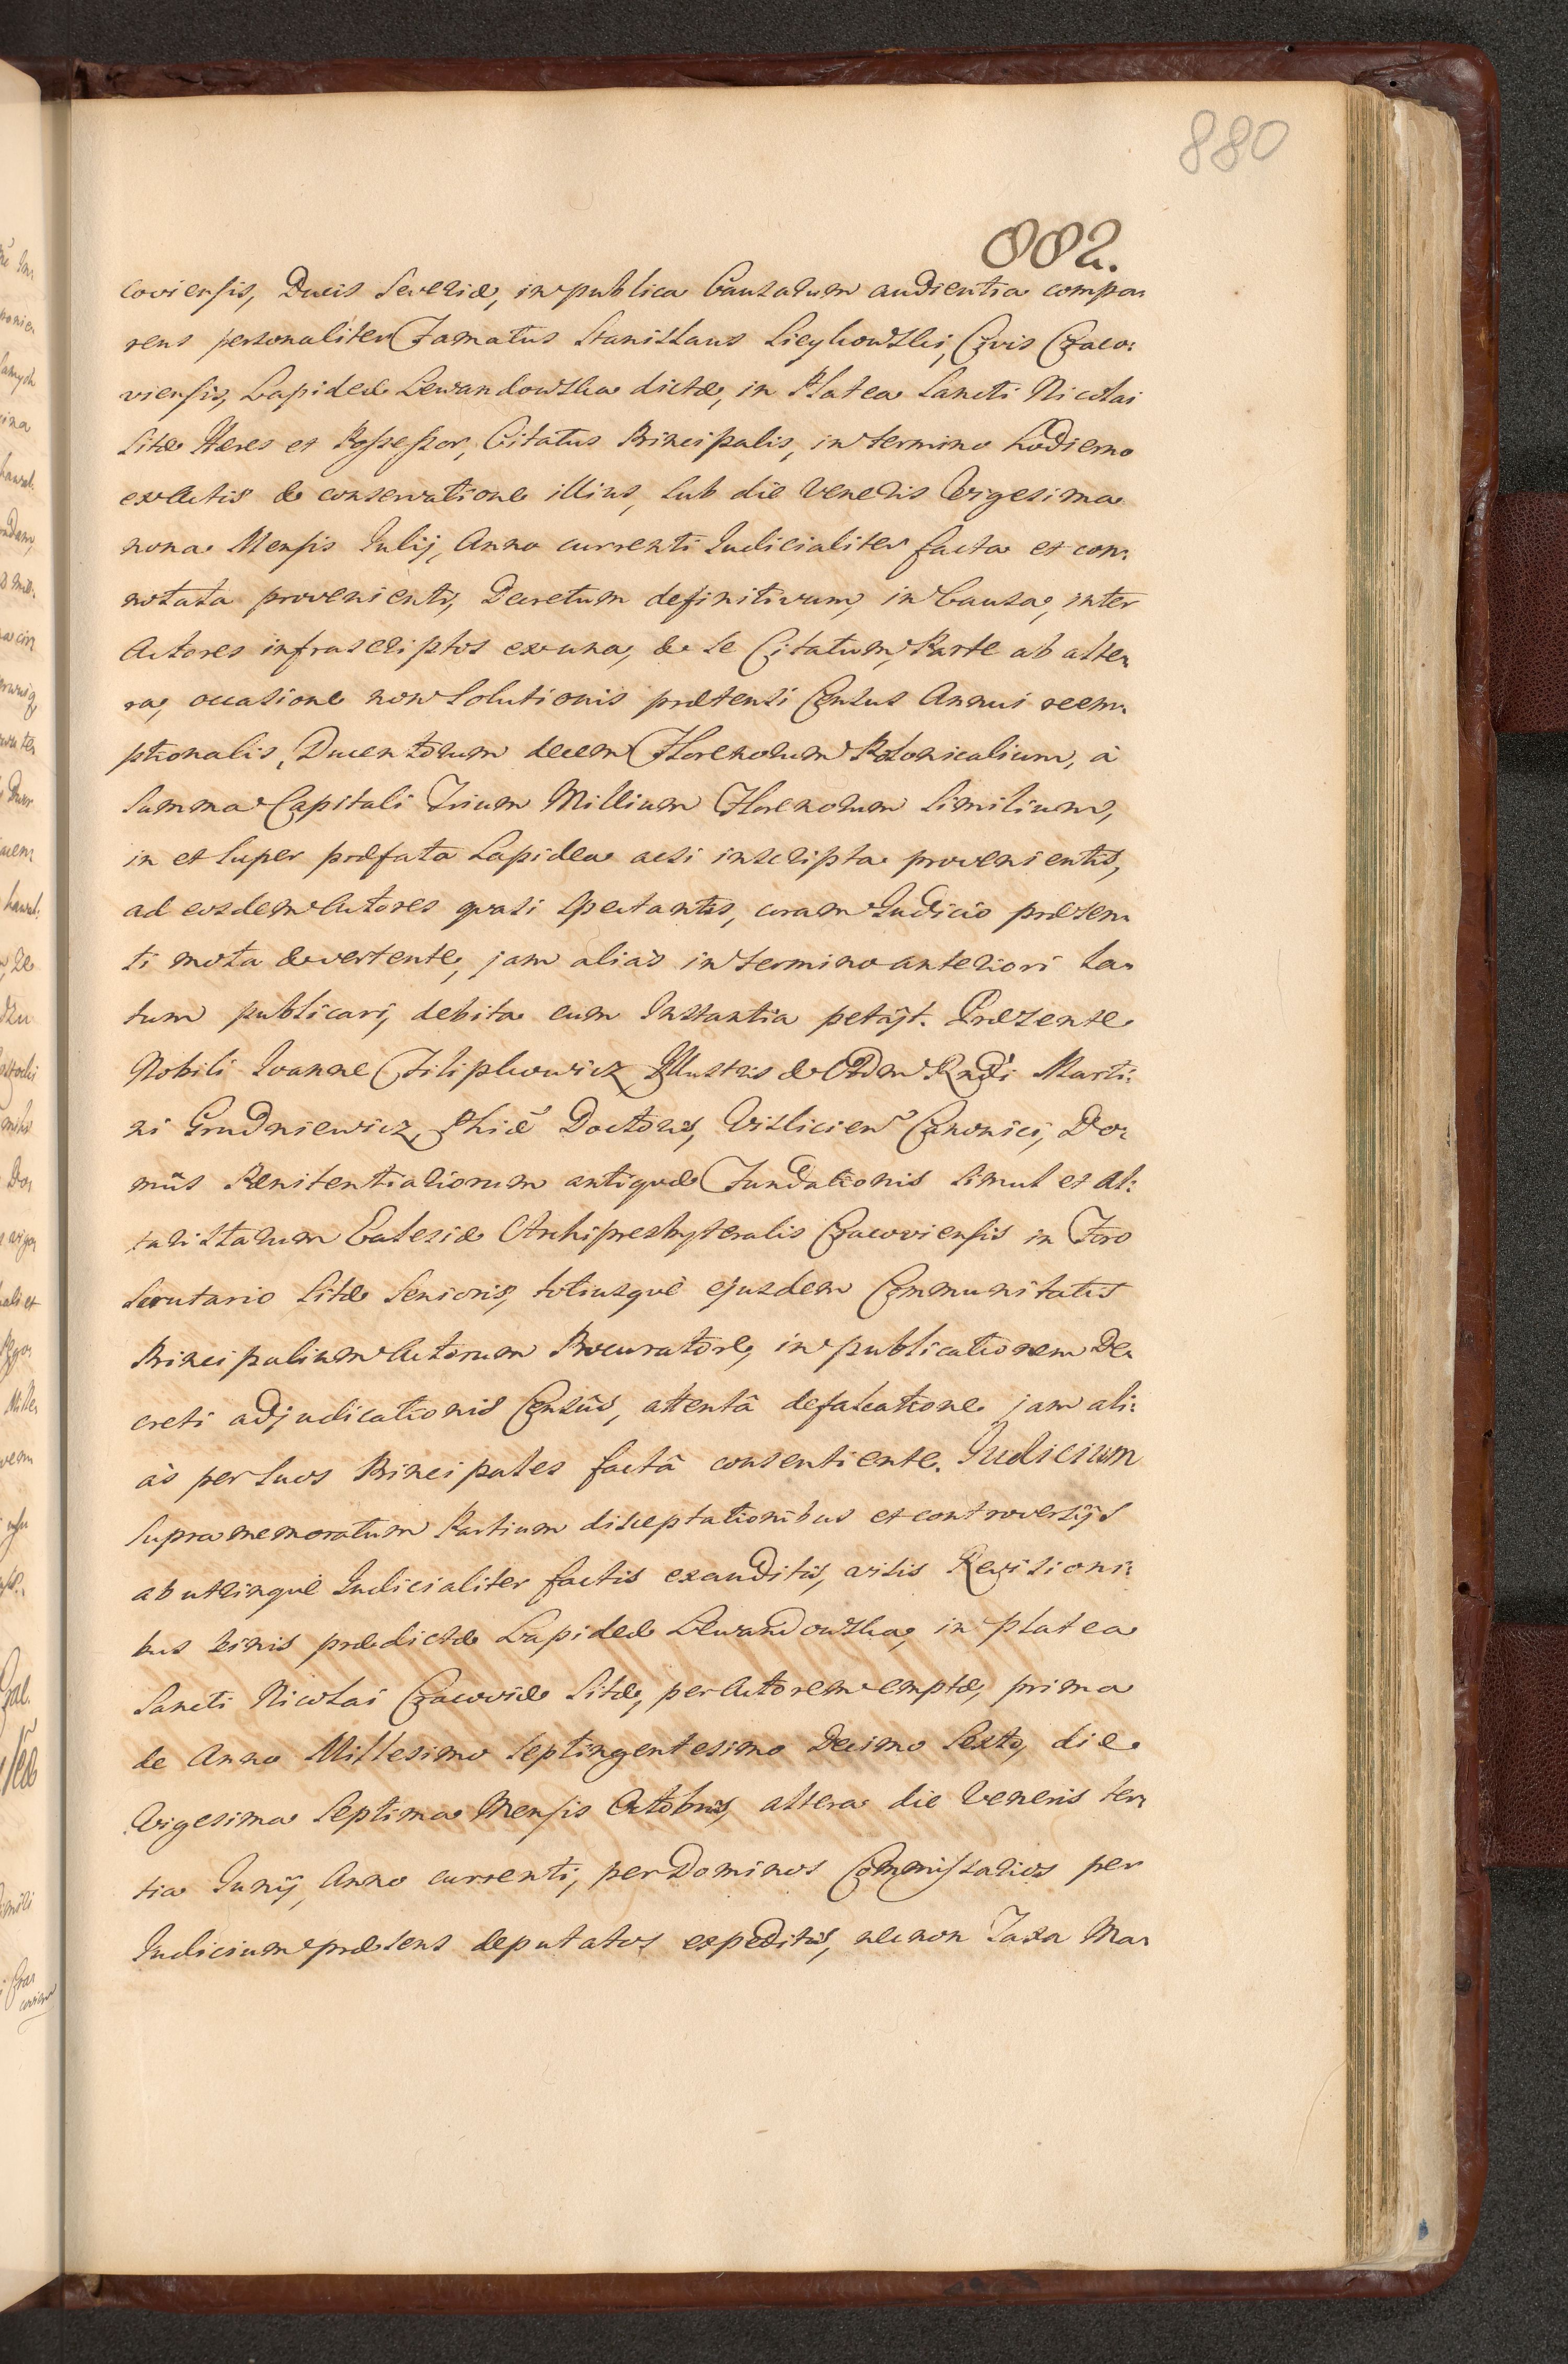 880
882.
coviensis, Ducis Severiæ, in publica Causarum audientia compa:
rens personaliter Famatus Stanislaus Sieykowski, Civis Craco:
viensis, Lapideæ Lewandowska dictæ, in Platea Sancti Nicolai
sitæ Hæres et Possessor, Citatus Principalis, in termino hodierno
ex Actis & conservatione illius, sub die Veneris Vigesima
nona Mensis Julij, Anno currenti Judicialiter facta et con:
notata provenienti, Decretum definitivum, in Causa, inter
Actores infrascriptos ex una, & se Citatum, Parte ab alte:
ra, occasione non solutionis prætensi Census Annui reem:
ptionalis, Ducentorum decem Florenorum Polonicalium, à
Summa Capitali Trium Millium Florenorum similium,
in et super præfata Lapidea acsi inscripta provenientis,
ad eosdem Actores quasi spectantis, coram Judicio præsen:
ti mota & vertente, jam aliàs in termino anteriori la:
tum publicari, debita cum Instantia petijt. Præsente
Nobili Joanne Filipkowicz Illustris & Adm Rndi Marti:
ni Grudniewicz, Phiæ Doctoris, Vislicien Canonici, Do:
mûs Pænitentiariorum antiquæ Fundationis simul et Al:
taristarum Ecclesiæ Archipresbyteralis Cracoviensis in Foro
Scrutario sitæ Senioris, totiusquè ejusdem Communitatis
Principalium Actorum Procuratore, in publicationem De:
creti adjudicationis Censûs, attentâ defalcatione jam ali:
às per suos Principales factâ consentiente. Judicium
supramemoratum Partium disceptationibus et controversijs
ab utrinquè Judicialiter factis exauditis, visis Revisioni:
bus binis prædictæ Lapideæ Lewandowska, in platea
Sancti Nicolai Cracoviæ sitæ, per Actorem emptæ, prima
de Anno Millesimo Septingentesimo Decimo Sexto, die
Vigesima Septima Mensis Octobris, altera die Veneris ter:
tia Junij, Anno currenti, per Dominos Commissarios per
Judicium præsens deputatos expeditis, nec non Taxa Ma: